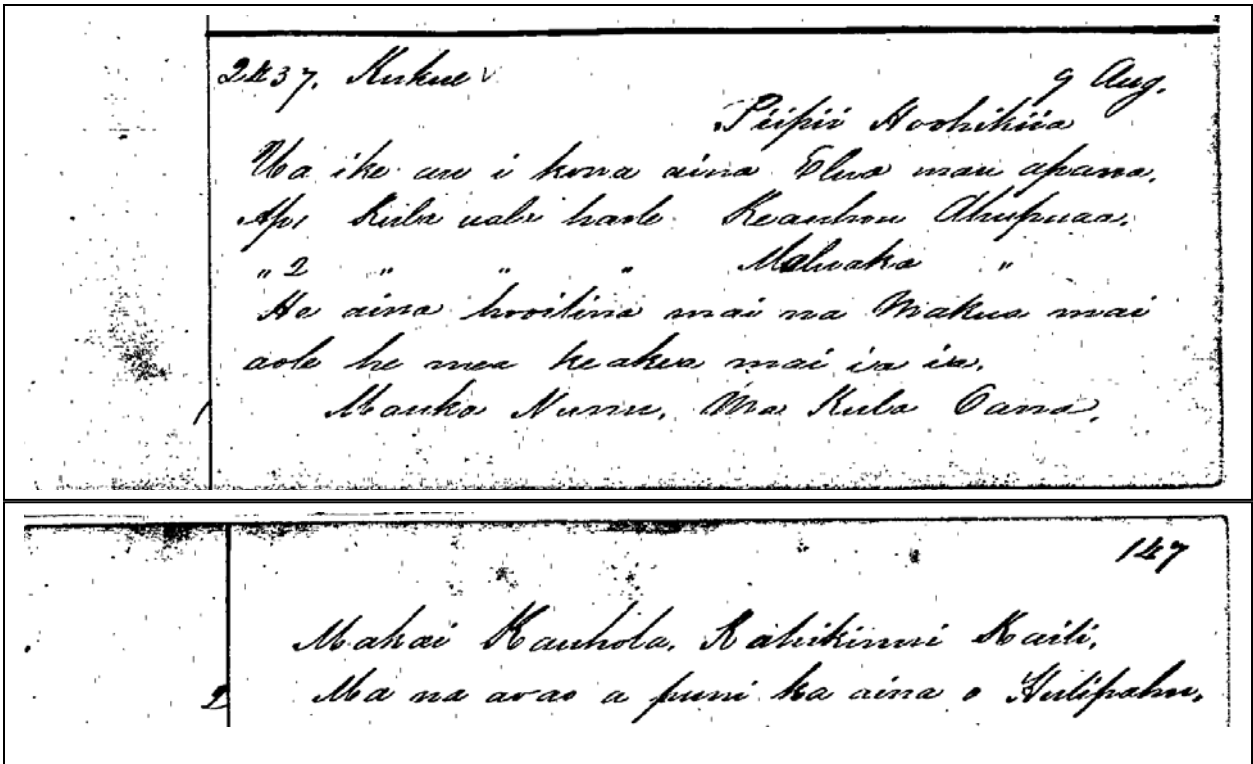 2437. Kukue 9 Aug.
Piipii Hoohikiia
Ua ike au i kona aina Elua mau apana.
Ap 1 Kula uala haole Keauhou Ahupuaa.
" 2 " " " Maluaka "
He aina hooilina mai na Makua mai
aole he mea keakea mai ia ia.
1 Mauka Nunu, Ma Kula Oana,
147
Makai Kauhola, Kahikinui Kaili.
2 Ma na aoao a puni ka aina o Hulipahu.